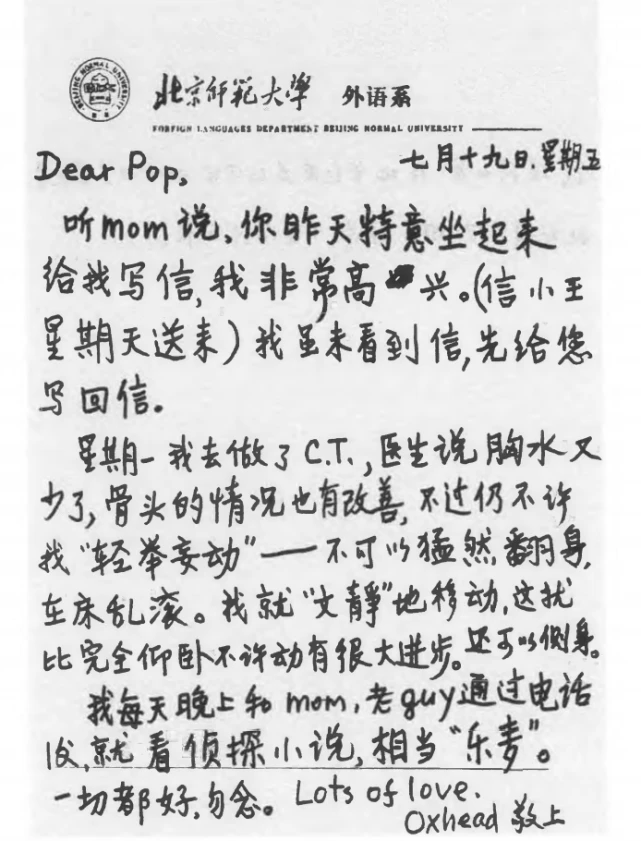 BEIJING NORMAL UNIVERSITY
北京师范大学 外语系
FOREIGN LANGUAGES DEPARTMENT BEIJING NORMAL UNIVERSITY
七月十九日.星期五
Dear Pop,
听mom说,你昨天特意坐起来
给我写信,我非常高兴。(信小王
星期天送来)我虽未看到信,先给您
写回信。
星期一我去做了C.T.,医生说胸水又
少了,骨头的情况也有改善,不过仍不许
我“轻举妄动”——不可以猛然翻身,
在床乱滚。我就“文静”地移动,这就
比完全仰卧不许动有很大进步。还可以侧身。
我每天晚上和mom,老guy通过电话
后,就看侦探小说,相当“乐麦”。
一切都好,勿念。Lots of love.
Oxhead 敬上